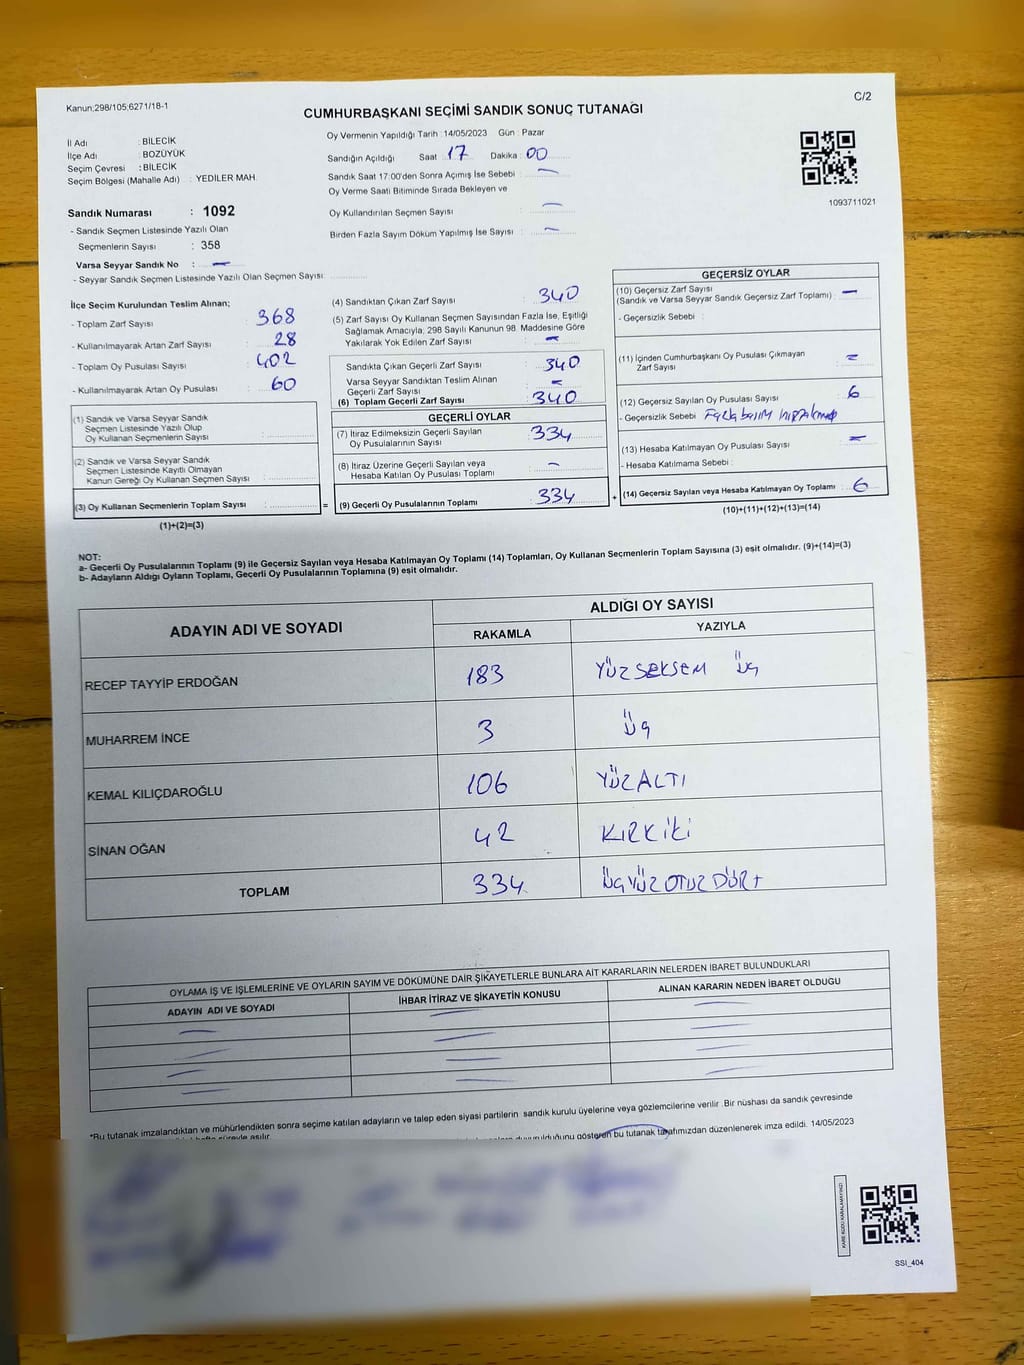 Kanun:298/105;6271/18-1
C/2
CUMHURBAŞKANI SEÇİMİ SANDIK SONUÇ TUTANAĞI
İl Adı : BİLECİK
İlçe Adı : BOZÜYÜK
Seçim Çevresi : BİLECİK
Seçim Bölgesi (Mahalle Adı) : YEDİLER MAH.
Sandık Numarası : 1092
- Sandık Seçmen Listesinde Yazılı Olan
Seçmenlerin Sayısı : 358
Varsa Seyyar Sandık No : —
- Seyyar Sandık Seçmen Listesinde Yazılı Olan Seçmen Sayısı :
Oy Vermenin Yapıldığı Tarih : 14/05/2023 Gün : Pazar
Sandığın Açıldığı Saat : 17 Dakika : 00
Sandık Saat 17:00'den Sonra Açmış İse Sebebi : —
Oy Verme Saati Bitiminde Sırada Bekleyen ve
Oy Kullandırılan Seçmen Sayısı : —
Birden Fazla Sayım Döküm Yapılmış İse Sayısı : —
1093711021
İlçe Seçim Kurulundan Teslim Alınan;
- Toplam Zarf Sayısı : 368
- Kullanılmayarak Artan Zarf Sayısı : 28
- Toplam Oy Pusulası Sayısı : 402
- Kullanılmayarak Artan Oy Pusulası : 60
(1) Sandık ve Varsa Seyyar Sandık
Seçmen Listesinde Yazılı Olup
Oy Kullanan Seçmenlerin Sayısı :
(2) Sandık ve Varsa Seyyar Sandık
Seçmen Listesinde Kayıtlı Olmayan
Kanun Gereği Oy Kullanan Seçmen Sayısı :
(3) Oy Kullanan Seçmenlerin Toplam Sayısı :
(1)+(2)=(3)
(4) Sandıktan Çıkan Zarf Sayısı : 340
(5) Zarf Sayısı Oy Kullanan Seçmen Sayısından Fazla İse, Eşitliği
Sağlamak Amacıyla; 298 Sayılı Kanunun 98. Maddesine Göre
Yakılarak Yok Edilen Zarf Sayısı : —
Sandıkta Çıkan Geçerli Zarf Sayısı : 340
Varsa Seyyar Sandıktan Teslim Alınan
Geçerli Zarf Sayısı : —
(6) Toplam Geçerli Zarf Sayısı : 340
GEÇERLİ OYLAR
(7) İtiraz Edilmeksizin Geçerli Sayılan
Oy Pusulalarının Sayısı : 334
(8) İtiraz Üzerine Geçerli Sayılan veya
Hesaba Katılan Oy Pusulası Toplamı : —
= (9) Geçerli Oy Pusulalarının Toplamı : 334
GEÇERSİZ OYLAR
(10) Geçersiz Zarf Sayısı
(Sandık ve Varsa Seyyar Sandık Geçersiz Zarf Toplamı) : —
- Geçersizlik Sebebi :
(11) İçinden Cumhurbaşkanı Oy Pusulası Çıkmayan
Zarf Sayısı : =
(12) Geçersiz Sayılan Oy Pusulası Sayısı : 6
- Geçersizlik Sebebi : Fazla basım
(13) Hesaba Katılmayan Oy Pusulası Sayısı : —
- Hesaba Katılmama Sebebi :
+ (14) Geçersiz Sayılan veya Hesaba Katılmayan Oy Toplamı : 6
(10)+(11)+(12)+(13)=(14)
NOT:
a- Geçerli Oy Pusulalarının Toplamı (9) ile Geçersiz Sayılan veya Hesaba Katılmayan Oy Toplamı (14) Toplamları, Oy Kullanan Seçmenlerin Toplam Sayısına (3) eşit olmalıdır. (9)+(14)=(3)
b- Adayların Aldığı Oyların Toplamı, Geçerli Oy Pusulalarının Toplamına (9) eşit olmalıdır.
ADAYIN ADI VE SOYADI
ALDIĞI OY SAYISI
RAKAMLA YAZIYLA
RECEP TAYYİP ERDOĞAN 183 YÜZSEKSEM ÜÇ
MUHARREM İNCE 3 ÜÇ
KEMAL KILIÇDAROĞLU 106 YÜZALTI
SİNAN OĞAN 42 KIRKİKİ
TOPLAM 334 ÜÇYÜZ OTUZ DÖRT
OYLAMA İŞ VE İŞLEMLERİNE VE OYLARIN SAYIM VE DÖKÜMÜNE DAİR ŞİKAYETLERLE BUNLARA AİT KARARLARIN NELERDEN İBARET BULUNDUKLARI
ADAYIN ADI VE SOYADI İHBAR İTİRAZ VE ŞİKAYETİN KONUSU ALINAN KARARIN NEDEN İBARET OLDUĞU
*Bu tutanak imzalandıktan ve mühürlendikten sonra seçime katılan adayların ve talep eden siyasi partilerin sandık kurulu üyelerine veya gözlemcilerine verilir. Bir nüshası da sandık çevresinde
gösteren bu tutanak tarafımızdan düzenlenerek imza edildi. 14/05/2023
KARE KODU KARALAMAYINIZ!
SSI_404